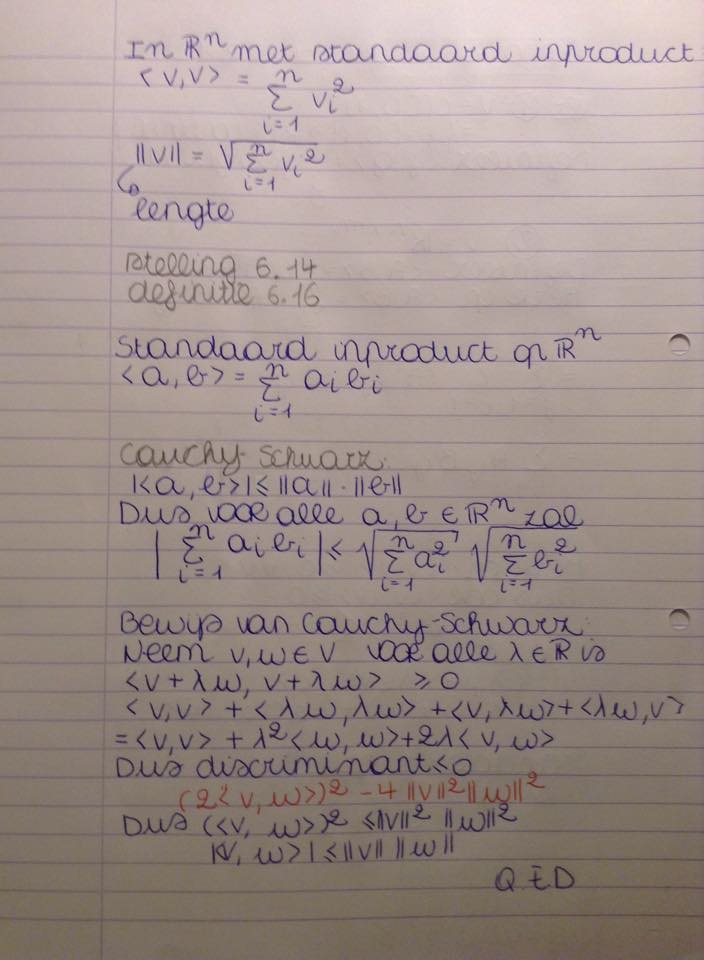 In ℝⁿ met standaard inproduct
<v,v> = Σ_{i=1}^{n} vᵢ²
||v|| = √(Σ_{i=1}^{n} vᵢ²)
↳ lengte
stelling 6.14
definitie 6.16
Standaard inproduct op ℝⁿ
<a,b> = Σ_{i=1}^{n} aᵢbᵢ
Cauchy-Schwarz:
|<a,b>| ≤ ||a|| · ||b||
Dus voor alle a,b ∈ ℝⁿ zal
|Σ_{i=1}^{n} aᵢbᵢ| ≤ √(Σ_{i=1}^{n} aᵢ²) √(Σ_{i=1}^{n} bᵢ²)
Bewijs van Cauchy-Schwarz:
Neem v,w ∈ V voor alle λ ∈ ℝ is
<v + λw, v + λw> ≥ 0
<v,v> + <λw,λw> + <v,λw> + <λw,v>
= <v,v> + λ²<w,w> + 2λ<v,w>
Dus discriminant ≤ 0
(2<v,w>)² - 4||v||²||w||²
Dus (<v,w>)² ≤ ||v||² ||w||²
|<v,w>| ≤ ||v|| ||w||
QED